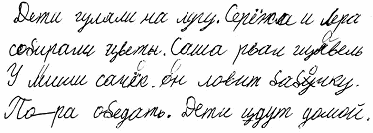 Дети гуляли на лугу. Серёжа и Лера
собирали цветы. Саша рвал щавель
У Миши сачёк. Он ловит бабочку.
По-ра обедать. Дети идут домой.